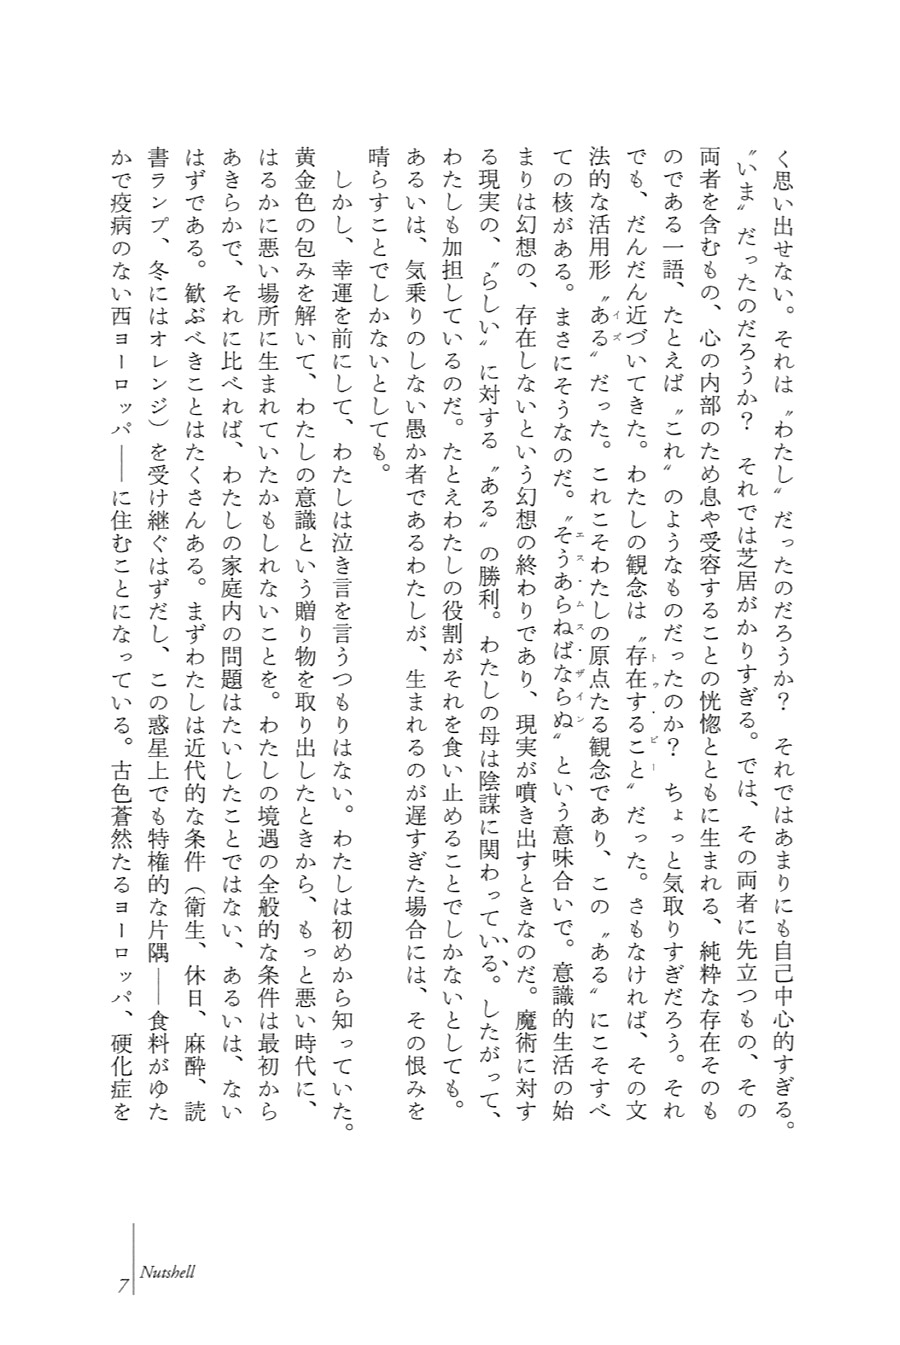 く思い出せない。それは〝わたし〟だったのだろうか？　それではあまりにも自己中心的すぎる。
〝いま〟だったのだろうか？　それでは芝居がかりすぎる。では、その両者に先立つもの、その
両者を含むもの、心の内部のため息や受容することの恍惚とともに生まれる、純粋な存在そのも
のである一語、たとえば〝これ〟のようなものだったのか？　ちょっと気取りすぎだろう。それ
でも、だんだん近づいてきた。わたしの観念は〝存在すること〟だった。さもなければ、その文
トゥ・ビー
法的な活用形〝ある〟だった。これこそわたしの原点たる観念であり、この〝ある〟にこそすべ
イズ
ての核がある。まさにそうなのだ。〝そうあらねばならぬ〟という意味合いで。意識的生活の始
エス・ムス・ザイン
まりは幻想の、存在しないという幻想の終わりであり、現実が噴き出すときなのだ。魔術に対す
る現実の、〝らしい〟に対する〝ある〟の勝利。わたしの母は陰謀に関わっている。したがって、
わたしも加担しているのだ。たとえわたしの役割がそれを食い止めることでしかないとしても。
あるいは、気乗りのしない愚か者であるわたしが、生まれるのが遅すぎた場合には、その恨みを
晴らすことでしかないとしても。
　しかし、幸運を前にして、わたしは泣き言を言うつもりはない。わたしは初めから知っていた。
黄金色の包みを解いて、わたしの意識という贈り物を取り出したときから、もっと悪い時代に、
はるかに悪い場所に生まれていたかもしれないことを。わたしの境遇の全般的な条件は最初から
あきらかで、それに比べれば、わたしの家庭内の問題はたいしたことではない、あるいは、ない
はずである。歓ぶべきことはたくさんある。まずわたしは近代的な条件（衛生、休日、麻酔、読
書ランプ、冬にはオレンジ）を受け継ぐはずだし、この惑星上でも特権的な片隅――食料がゆた
かで疫病のない西ヨーロッパ――に住むことになっている。古色蒼然たるヨーロッパ、硬化症を
7
Nutshell